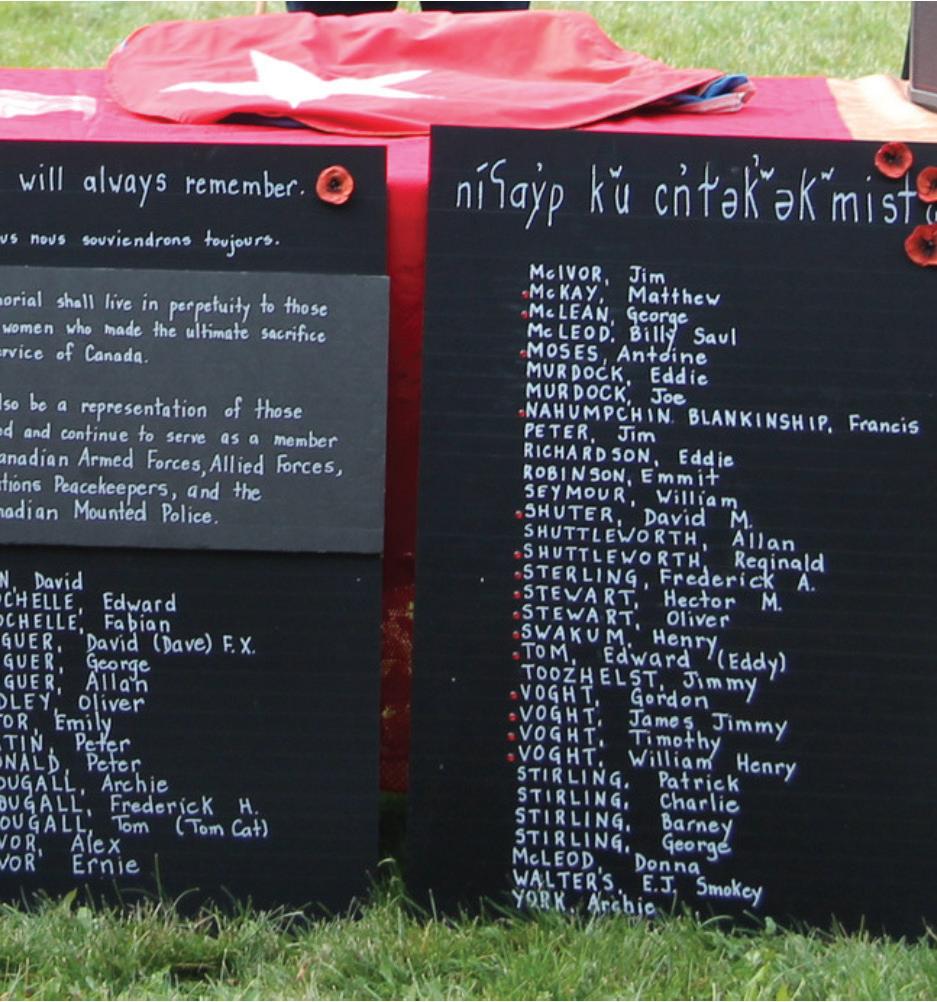 will always remember.
us nous souviendrons toujours.
orial shall live in perpetuity to those
women who made the ultimate sacrifice
rvice of Canada.
lso be a representation of those
d and continue to serve as a member
anadian Armed Forces, Allied Forces,
tions Peacekeepers, and the
nadian Mounted Police.
N, David
OCHELLE, Edward
OCHELLE, Fabian
GUER, David (Dave) F.X.
GUER, George
GUER, Allan
DLEY, Oliver
TOR, Emily
TIN, Peter
ONALD, Peter
OUGALL, Archie
OUGALL, Frederick H.
OUGALL, Tom (Tom Cat)
VOR, Alex
VOR' Ernie
McIVOR, Jim
McKAY, Matthew
McLEAN, George
McLEOD, Billy Saul
MOSES, Antoine
MURDOCK, Eddie
MURDOCK, Joe
NAHUMPCHIN. BLANKINSHIP, Francis
PETER, Jim
RICHARDSON, Eddie
ROBINSON, Emmit
SEYMOUR, William
SHUTER, David M.
SHUTTLEWORTH, Allan
SHUTTLEWORTH, Reginald
STERLING, Frederick A.
STEWART, Hector M.
STEWART, Oliver
SWAKUM, Henry
TOM, Edward (Eddy)
TOOZHELST, Jimmy
VOGHT, Gordon
VOGHT, James Jimmy
VOGHT, Timothy
VOGHT, William Henry
STIRLING, Patrick
STIRLING, Charlie
STIRLING, Barney
STIRLING, George
McLEOD, Donna
WALTER'S, E.J, Smokey
YORK, Archie